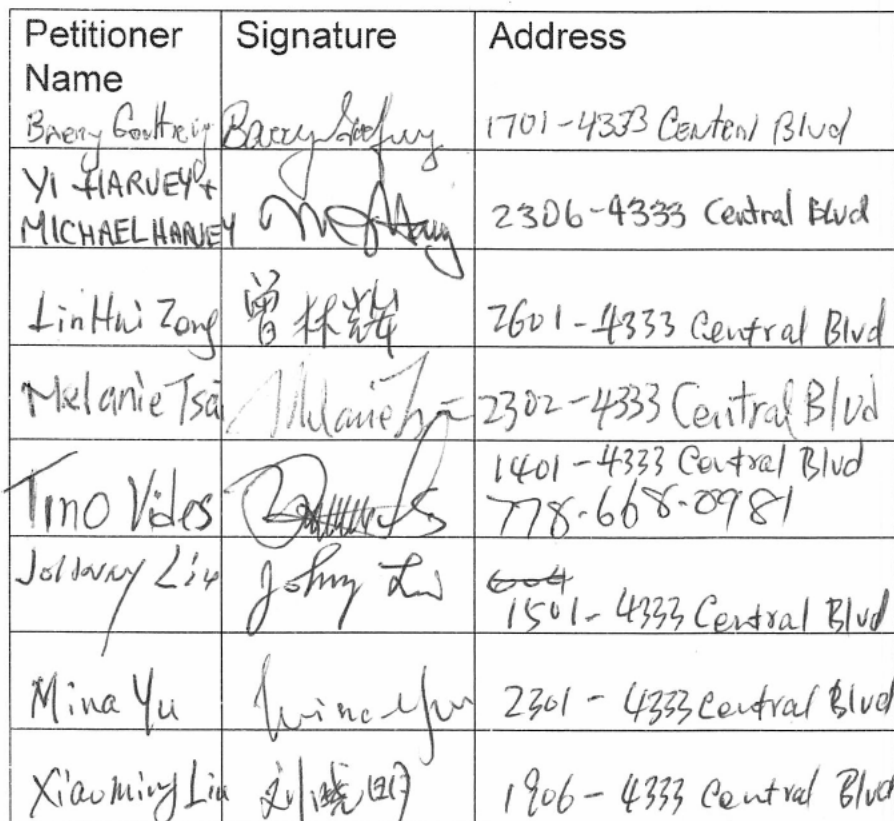 Petitioner Name Signature Address
Barry Barry Godfrey 1701-4333 Central Blvd
YI HARVEY +
MICHAEL HARVEY 2306-4333 Central Blvd
LinHui Zong 曾林辉 2601-4333 Central Blvd
Melanie Tsai Melanie Tsai 2302-4333 Central Blvd
Tino Vides 1401-4333 Central Blvd
778-668-0981
Johnny Liu Johny Liu 604
1501-4333 Central Blvd
Mina Yu Mina Yu 2301-4333 Central Blvd
Xiaoming Liu 刘晓明 1906-4333 Central Blvd